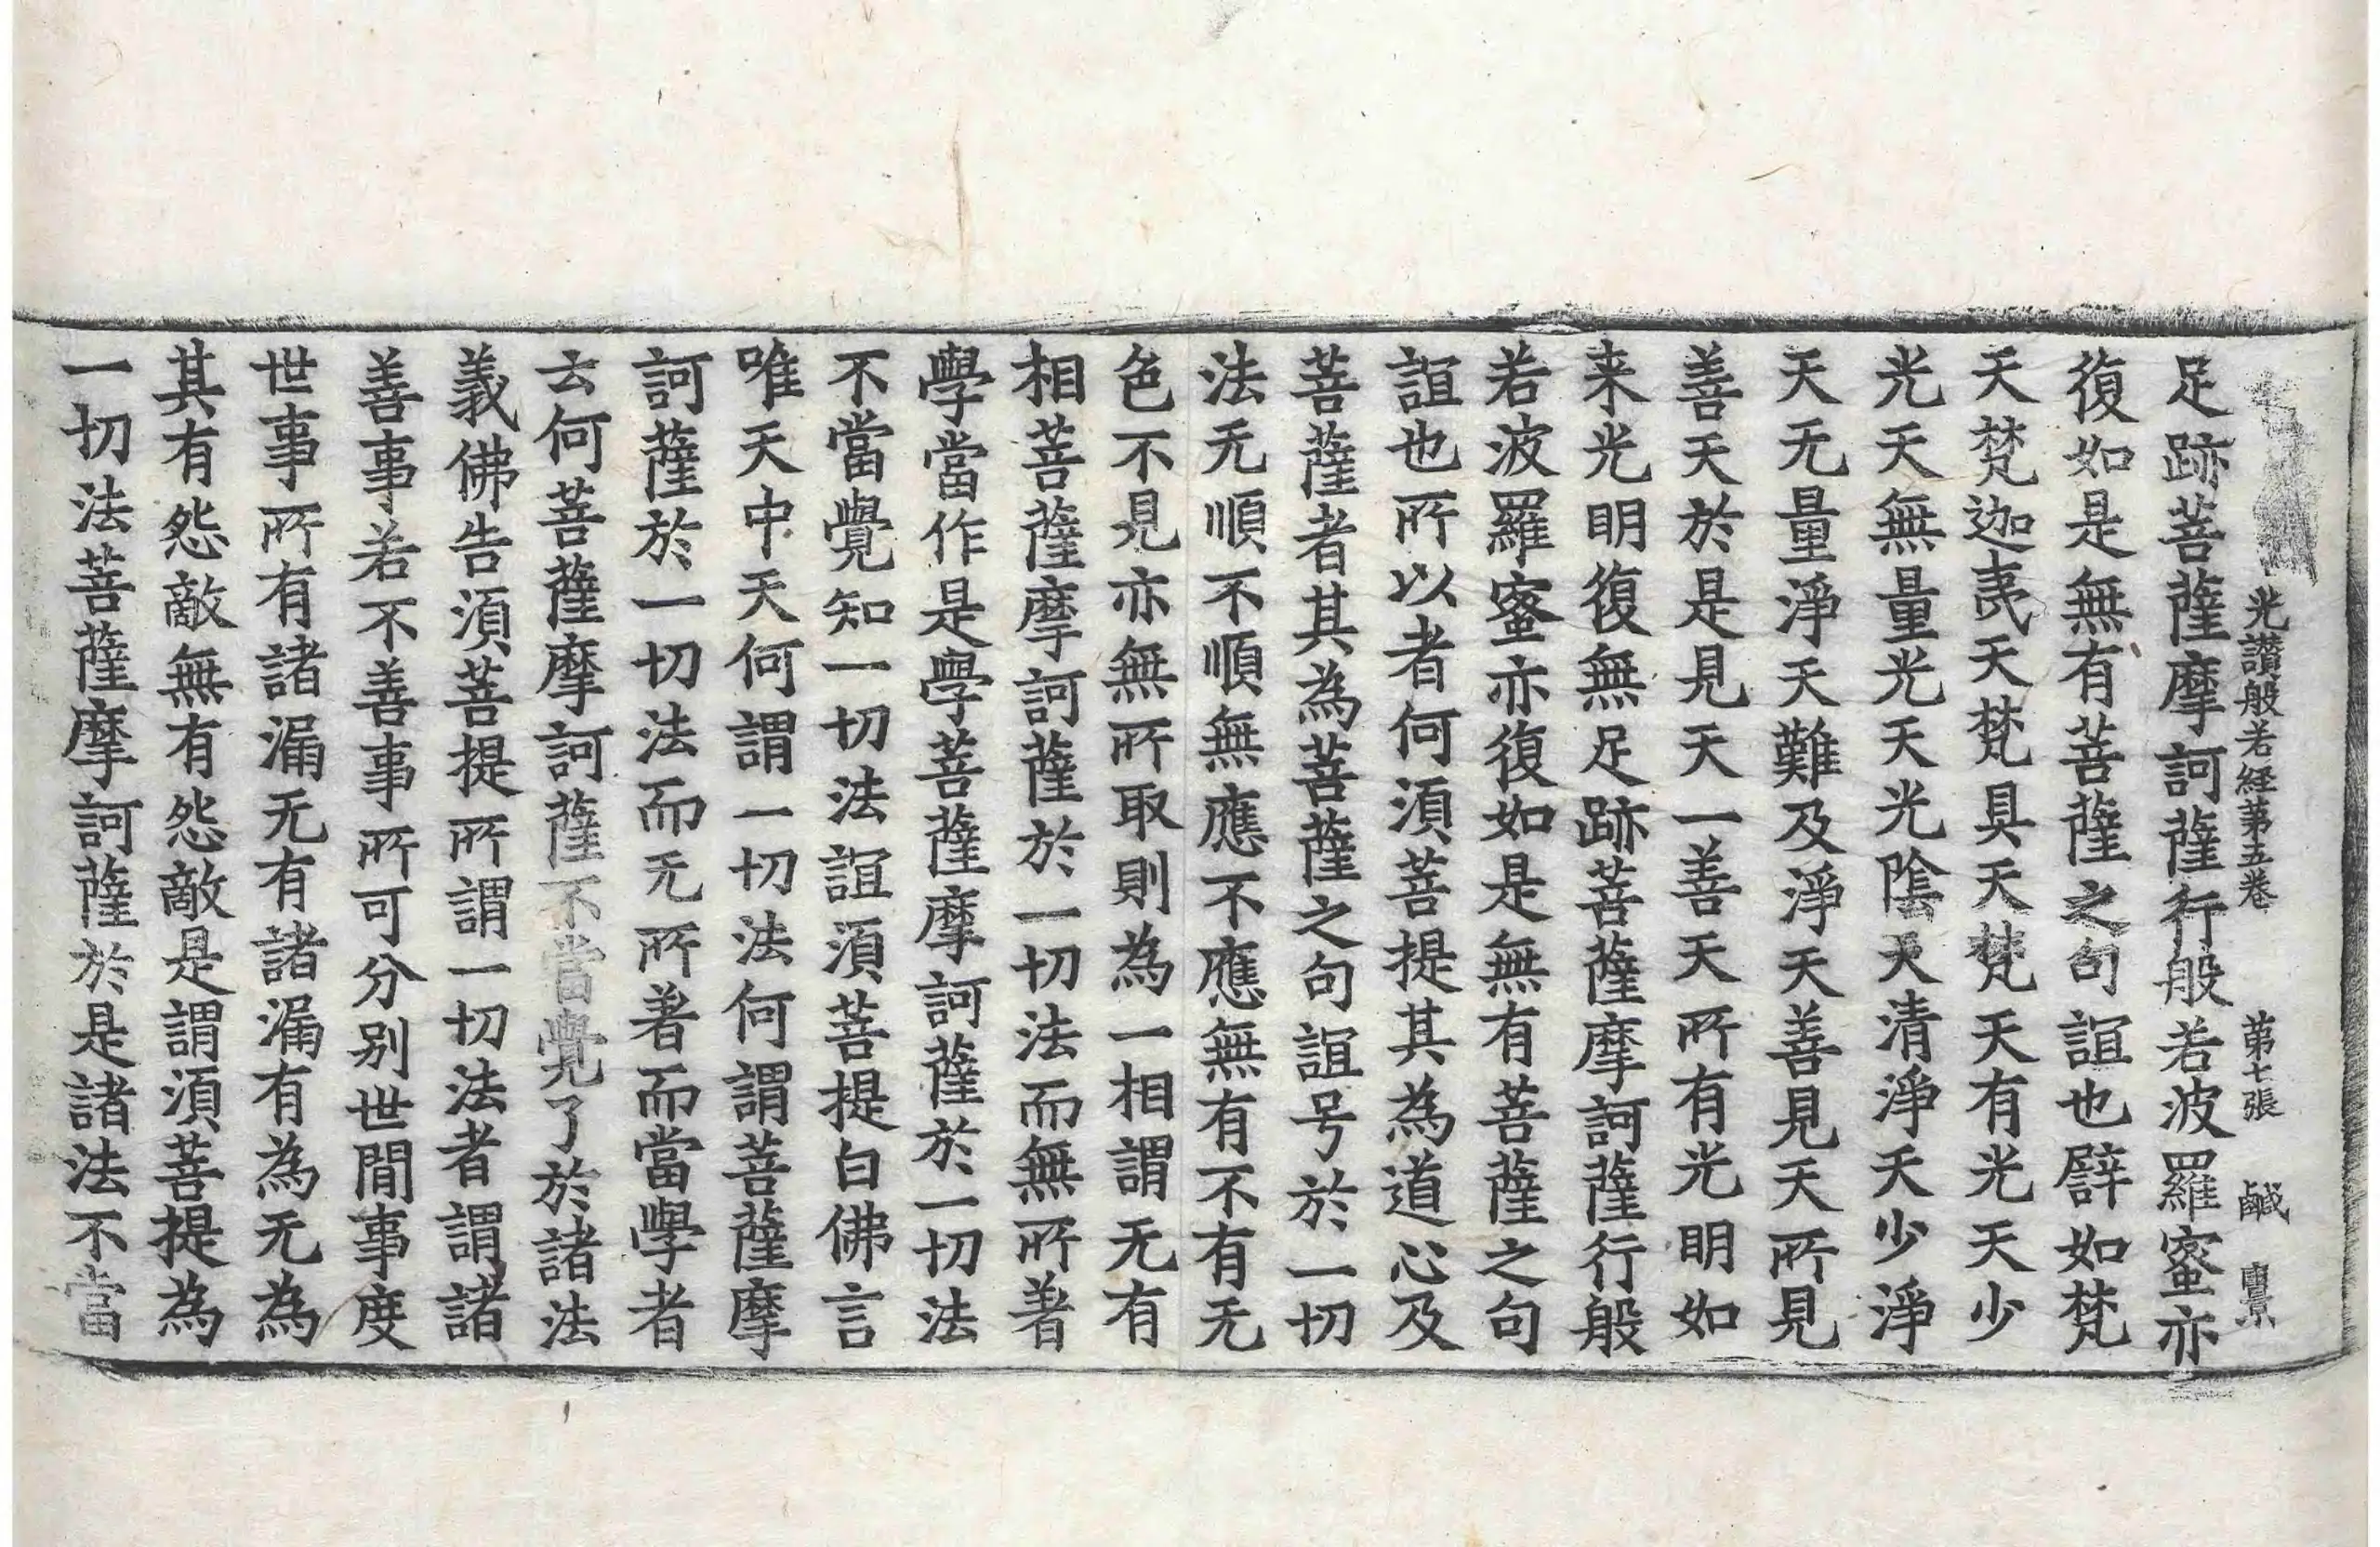 光讚般若経苐五卷 苐七張 鹹
足跡菩薩摩訶薩行般若波羅蜜亦
復如是無有菩薩之句誼也譬如梵
天梵迦夷天梵具天梵天有光天少
光天無量光天光陰天清淨天少淨
天无量淨天難及淨天善見天所見
善天於是見天一善天所有光明如
来光明復無足跡菩薩摩訶薩行般
若波羅蜜亦復如是無有菩薩之句
誼也所以者何須菩提其為道心及
菩薩者其為菩薩之句誼号於一切
法无順不順無應不應無有不有无
色不見亦無所取則為一相謂无有
相菩薩摩訶薩於一切法而無所著
學當作是學菩薩摩訶薩於一切法
不當覺知一切法誼須菩提白佛言
唯天中天何謂一切法何謂菩薩摩
訶薩於一切法而无所著而當學者
云何菩薩摩訶薩不當覺了於諸法
義佛告須菩提所謂一切法者謂諸
善事若不善事所可分別世間事度
世事所有諸漏无有諸漏有為无為
其有怨敵無有怨敵是謂須菩提為
一切法菩薩摩訶薩於是諸法不當